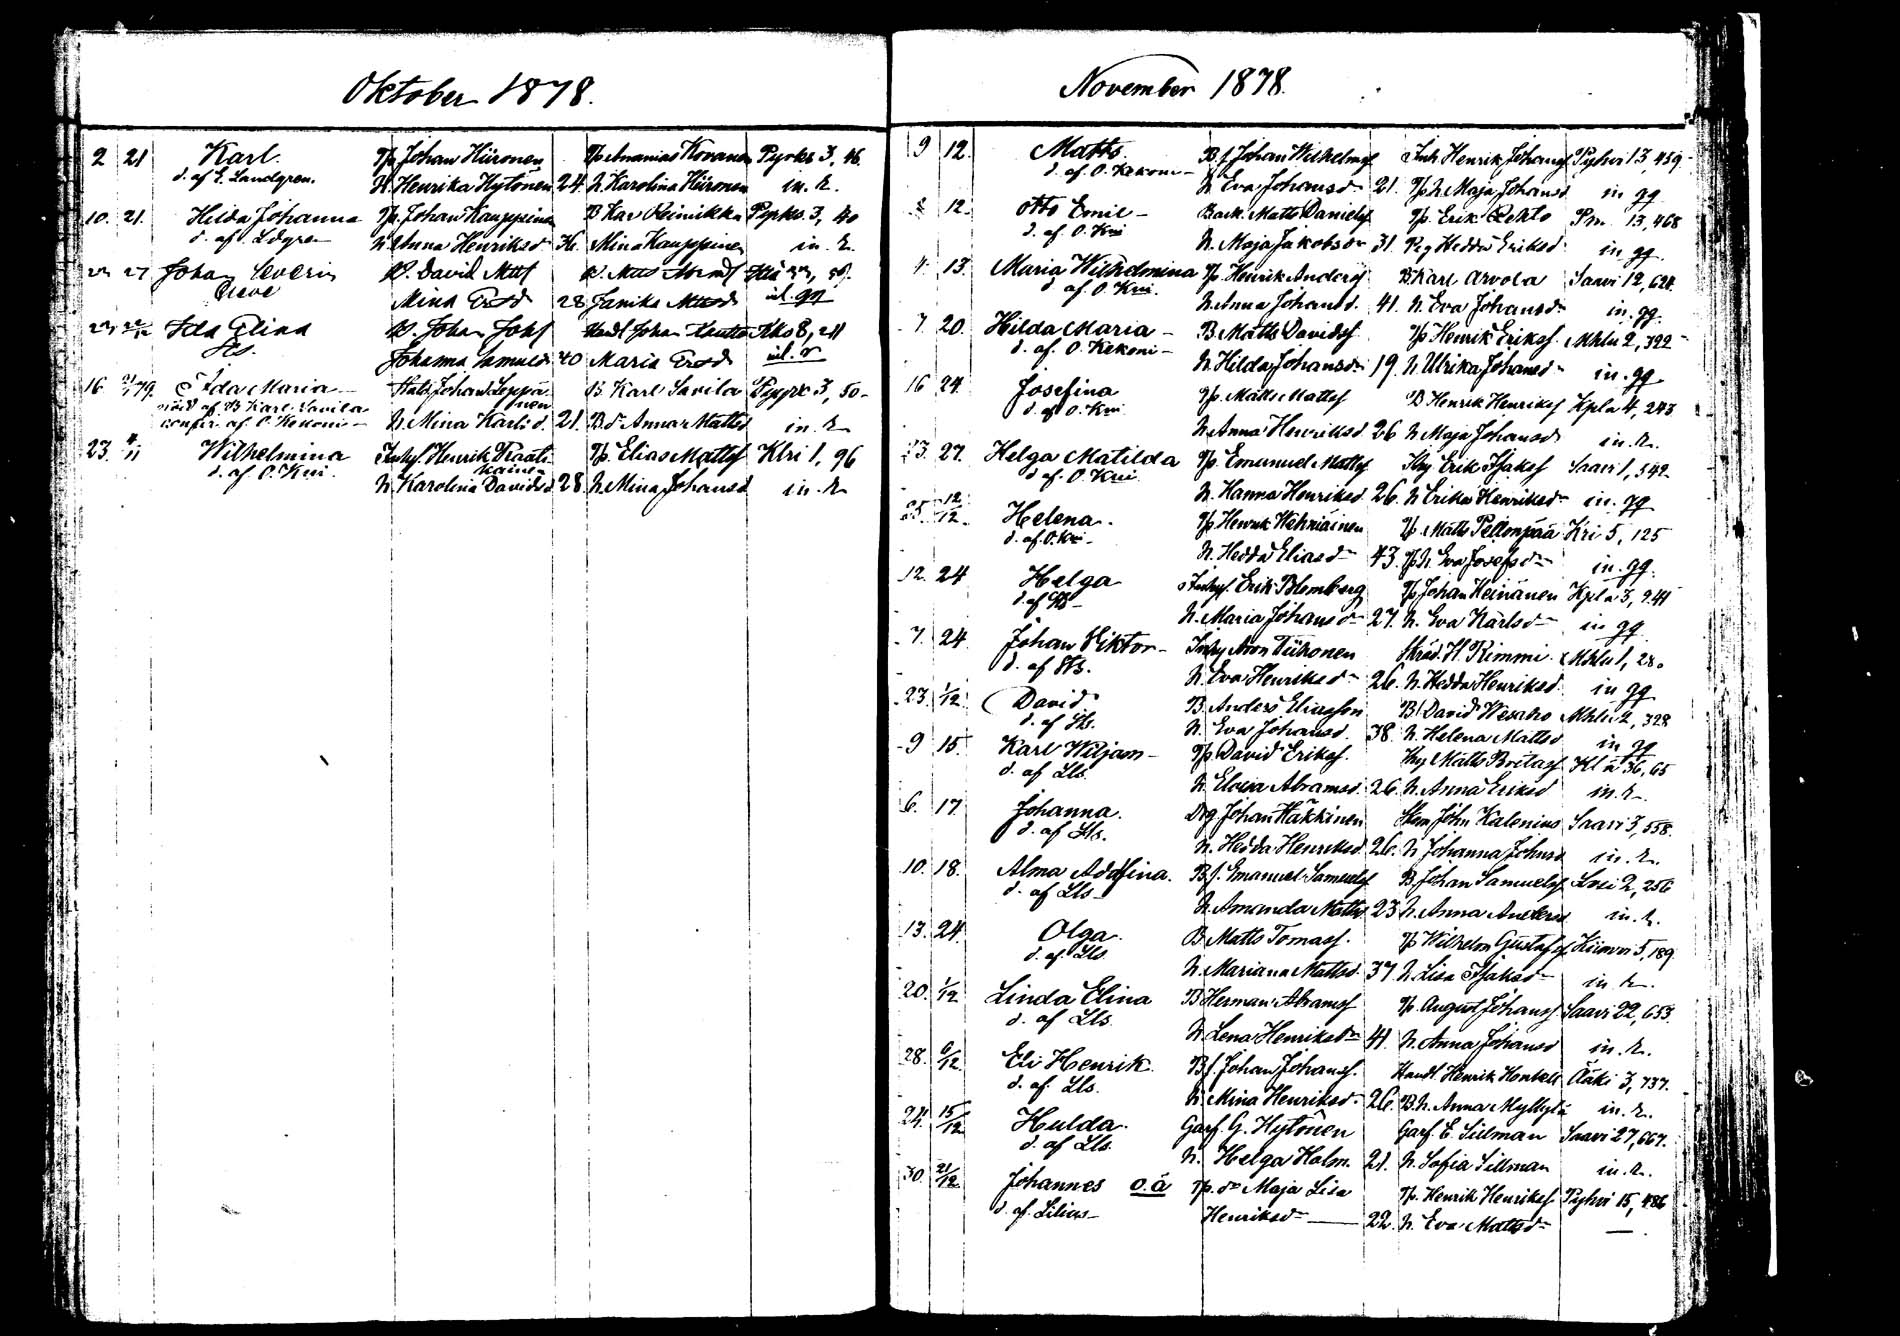 Oktober 1878.
2 21 Karl. Tp. Johan Hiironen Tp Ananias Kovanen Pyrkr 3, 46.
d. af E. Landgren. H. Henrika Hytönen 24. h Karolina Hiironen in. r.
10. 21. Hilda Johanna Tp. Johan Kauppinen B Kar Reinikka Pyrkr. 3, 40
d. af Ldgren h. Anna Henriksd 36. Mina Kauppinen in. r.
27 Johan Severin B. David Mttsf
Mina 28
Ida Elina B. Johan Johsf Johan 8, 211
Johanna Samuelsd 40 Maria
16. 79. Ida Maria Johan Seppä- B. Karl Savila Pyyrk 3, 50-
nöd. af B Karl Savila nen
confir. af O. Kekoni- h. Mina Karlsd. 21. B.d Anna Mattsd in. r
23. 4/11 Wilhelmina Inhys Henrik Raati- Tp. Elias Mattsf Klri 1, 96
d. af O. Kni. kainen
h Karolina Davidsd 28. h Mina Johansd in. r
November 1878.
9 12. Matts. B.f. Johan Wilhelmsf Inh Henrik Johansf Pyhvi 13, 459-
d. af O. Kekoni- h Eva Johansd 21. Tp h Maja Johansd in gg
12. Otto Emil- Back. Matts Danielsf Tp. Erik Lehto Pm. 13, 468
d. af O. Kni h. Maja Jakobsdr 31. Pig Hedda Eriksd in gg.
4. 13. Maria Wilhelmina Tp. Henrik Andersf B Karl Arvola Saavi 12, 624.
d. af O. Kni. h Anna Johansd. 41. h. Eva Johansd in. gg.
7. 20. Hilda Maria- B. Matts Davidsf. Tp Henrik Eriksf. Mhlu 2, 322-
d. af. O. Kekoni- h Hilda Johansdr 19. h Ulrika Johansd in. gg
16 24. Josefina Tp. Matts Mattsf B Henrik Henriksf Kpla 4, 243
d. af O. Kni h Anna Henriksd 26 h Maja Johansd in. r.
23. 27. Helga Matilda Tp. Emanuel Mattsf Erik Isaksf Saavi 1, 542
d. af. O Kni h. Hanna Henriksd. 26. h Erika Henriksd in. gg
25. 12/12. Helena. Tp Henrik Vehniäinen Tp Matts Pellonpää Kri 5, 125
d. af. O. Kni- h. Hedda Eliasd 43. Tp h. Eva Josefsd in. gg.
12. 24 Helga Inhys. Erik Blomberg Tp Johan Heinänen Kpla 3, 241
d. af h. Maria Johansd 27. h. Eva Karlsd in gg
7. 24. Johan Viktor- Inhy Aron Tiihonen Skräd. H. Rimmi. Mhlu 1, 28.
d. af h. Eva Henriksd 26. h. Hedda Henriksd. in gg
23. 1/12. David B. Anders Eliasson B. David Wesaho Mhlu 2, 328
d. af h. Eva Johansd. 38. h. Helena Mattsd in gg
9 15. Karl Wiljam- Tp. David Eriksf. Matts Kl a 36, 65
d. af Lls. h. Elvira Abramsd. 26. h. Anna Eriksd in. r.
6. 17. Johanna. Drg Johan Häkkinen John Kalenius Saavi 3, 558.
d. af Lls. h. Hedda Henriksd. 26. h Johanna Johnsd in. r.
10. 18. Alma Adolfina. B.f. Emanuel Samuelsf B. Johan Samuelsf. 2, 256
d. af Lls h. Amanda Mattsd 23 h. Anna Andersd in. r.
13. 24. Olga. B. Matts Tomasf. Tp Wilhelm Gustafsf. 5, 189
d. af. Lls h. Mariana Mattsd 37 h. Lisa Isaksd in. r.
20. 1/12 Linda Elina B Herman Abramsf Tp. August Johansf. Saavi 22, 653.
d. af Lls. h. Lena Henriksd 41. h. Anna Johansd in. r.
28. 6/12. Eli Henrik. B.f. Johan Johansf. Handl. Henrik Honkell Ääki 3, 737.
d. af Lls. h Mina Henriksd. 26. B. h. Anna Myllylä in. r.
24. 15/12 Hulda. Garf. G. Hytönen Garf. E. Sillman Saavi 27, 667.
d. af Lls. h. Helga Holm. 21. h. Sofia Sillman in. r.
30. 21/12. Johannes o.ä Tp. dr Maja Lisa Tp. Henrik Henriksf. Pyhvi 15, 486
d. af. Lilius- Henriksd 22. h. Eva Mattsd